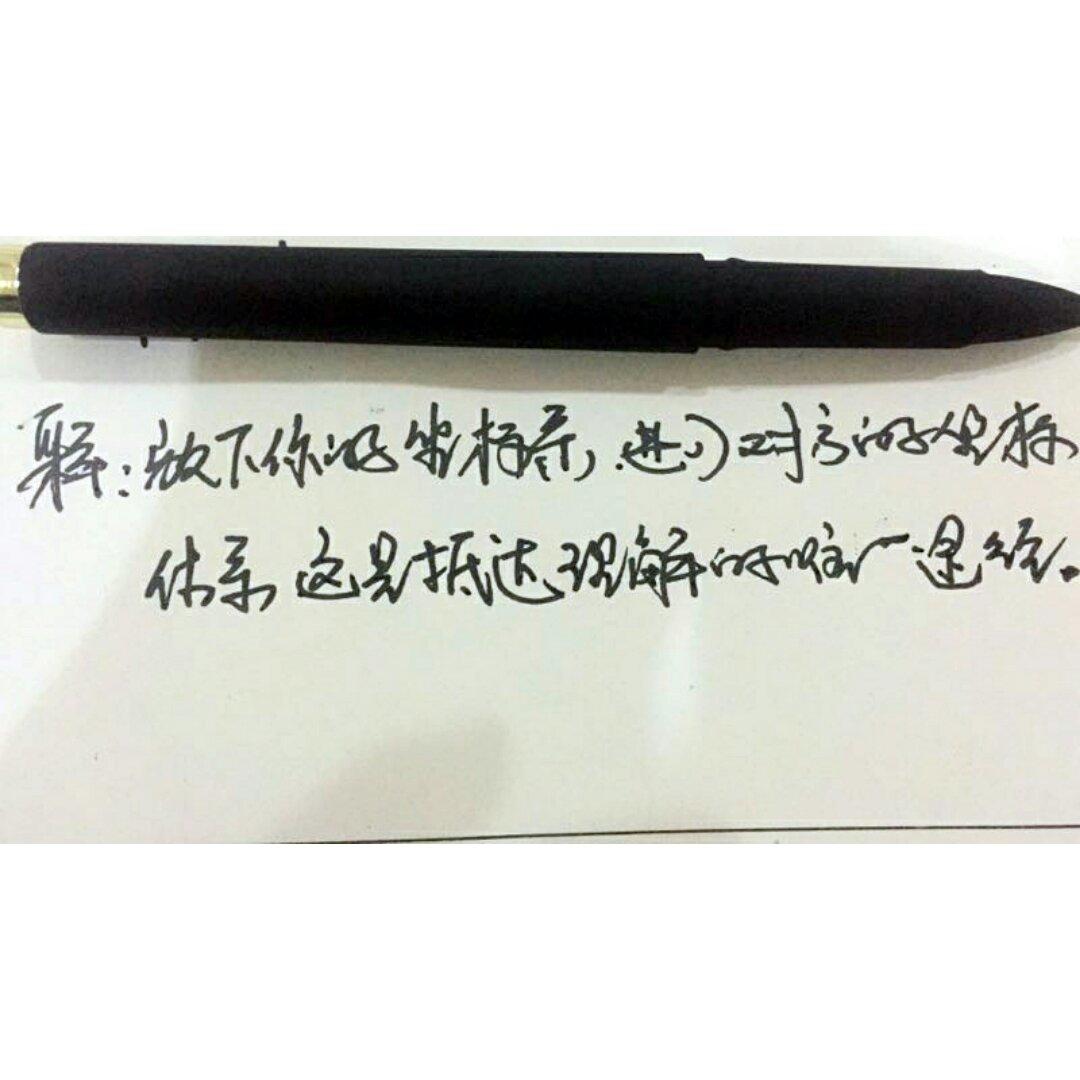 放下你的坐标系,进入对方的坐标
体系 这是抵达理解的唯一途径.